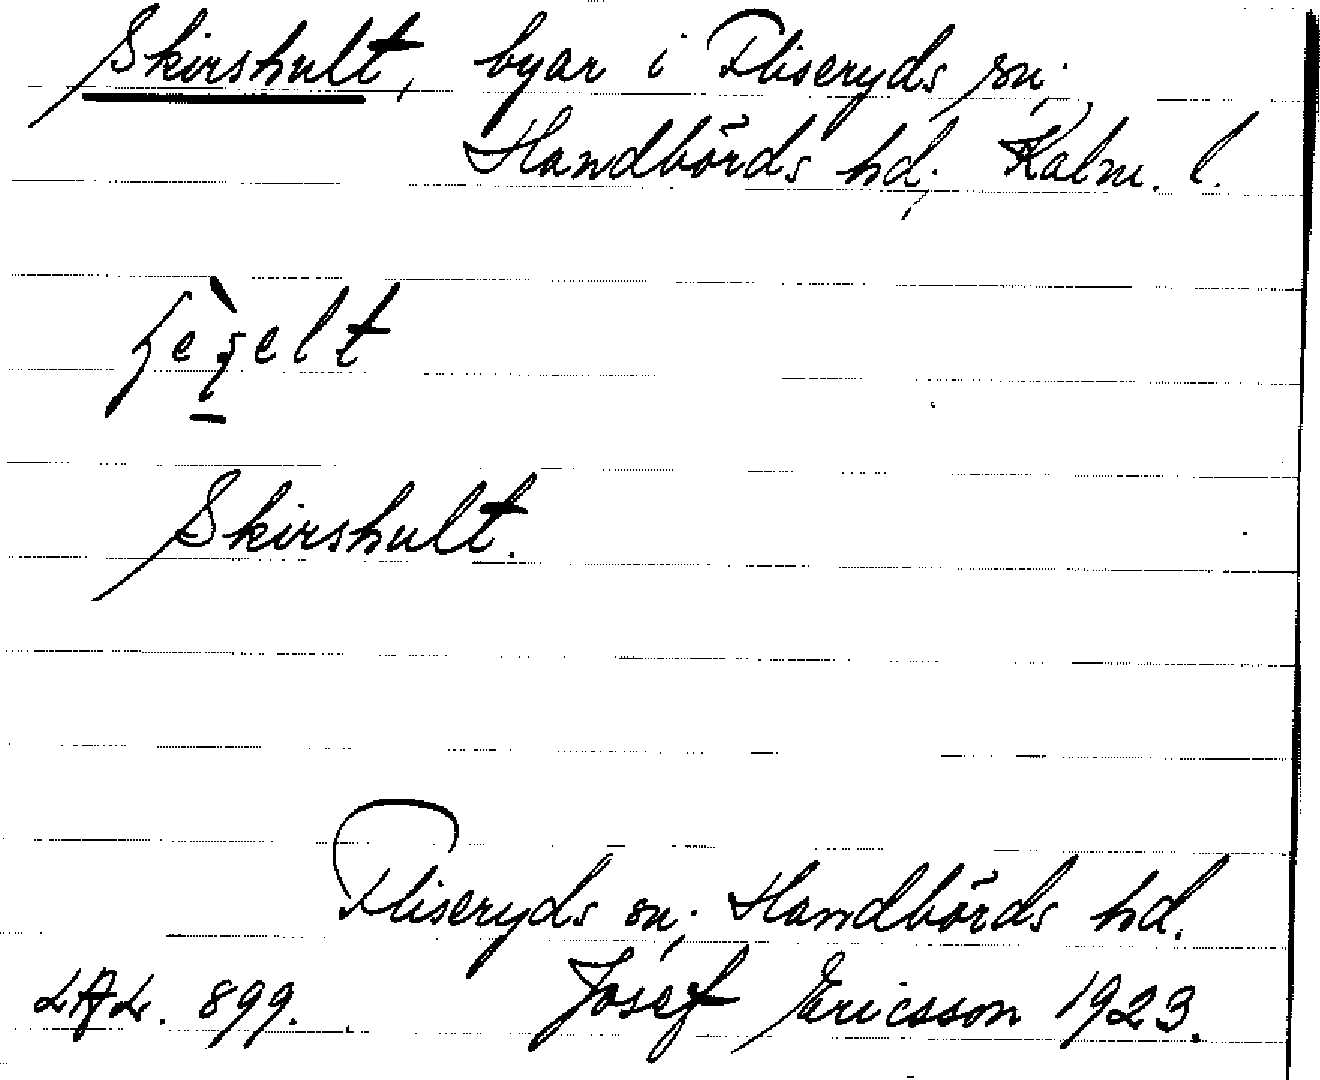 Skirshult, byar i Fliseryds sn;
Handbörds hd; Kalm. l.
Skirshult.
Fliseryds sn; Handbörds hd.
LAL. 899. Josef Ericsson 1923.